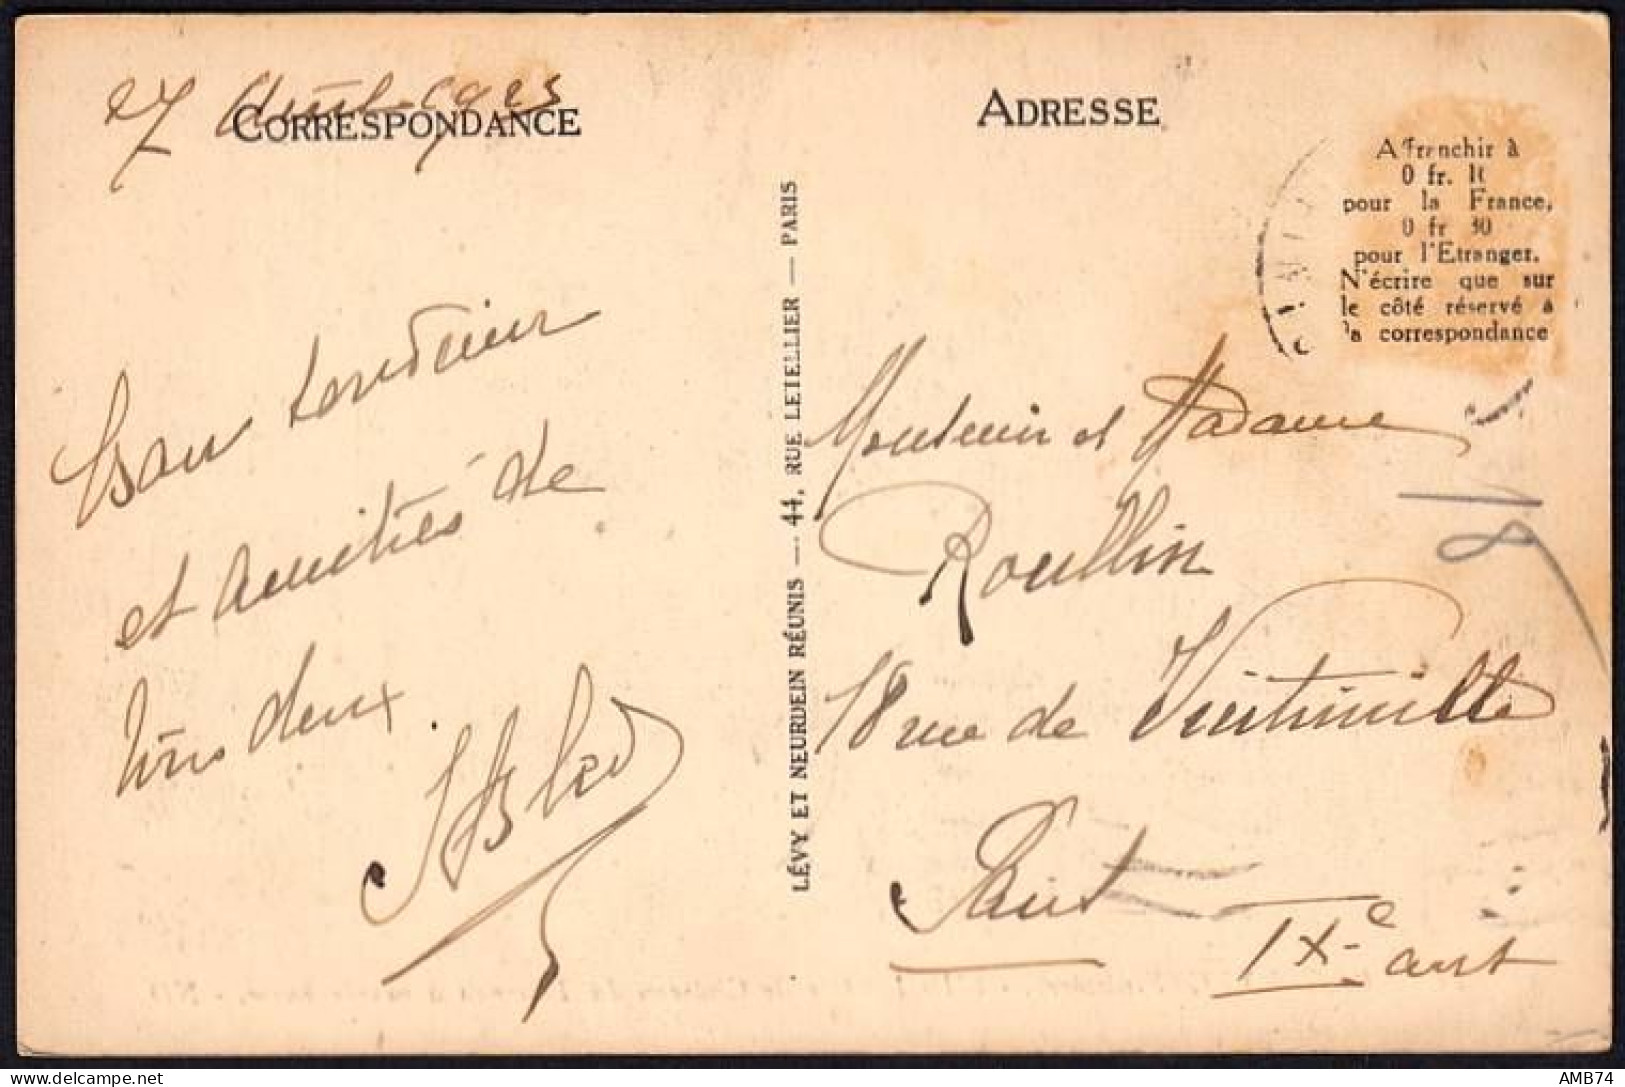 27 Août 1923
CORRESPONDANCE
Bon souvenir
et amitiés de
tous deux
ADRESSE
Affranchir à
0 fr. 10
pour la France,
0 fr 30
pour l'Etranger.
N'écrire que sur
le côté réservé à
la correspondance
LÉVY ET NEURDEIN RÉUNIS — 44, RUE LETELLIER — PARIS
Monsieur et Madame
Roullin
18 rue de Vintimille
Paris
IXe arrt
18
AMB74
delcampe.net